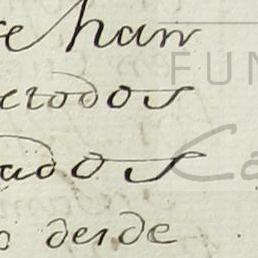 se han
erodos
ados
o desde
FUN
Ca